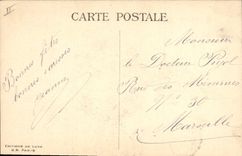 II
CARTE POSTALE
Bonne fête
bonnes
Jeanne
Monsieur
le Docteur
Rue des Minimes
N° 30
Marseille
EDITIONS DE LUXE
PARIS